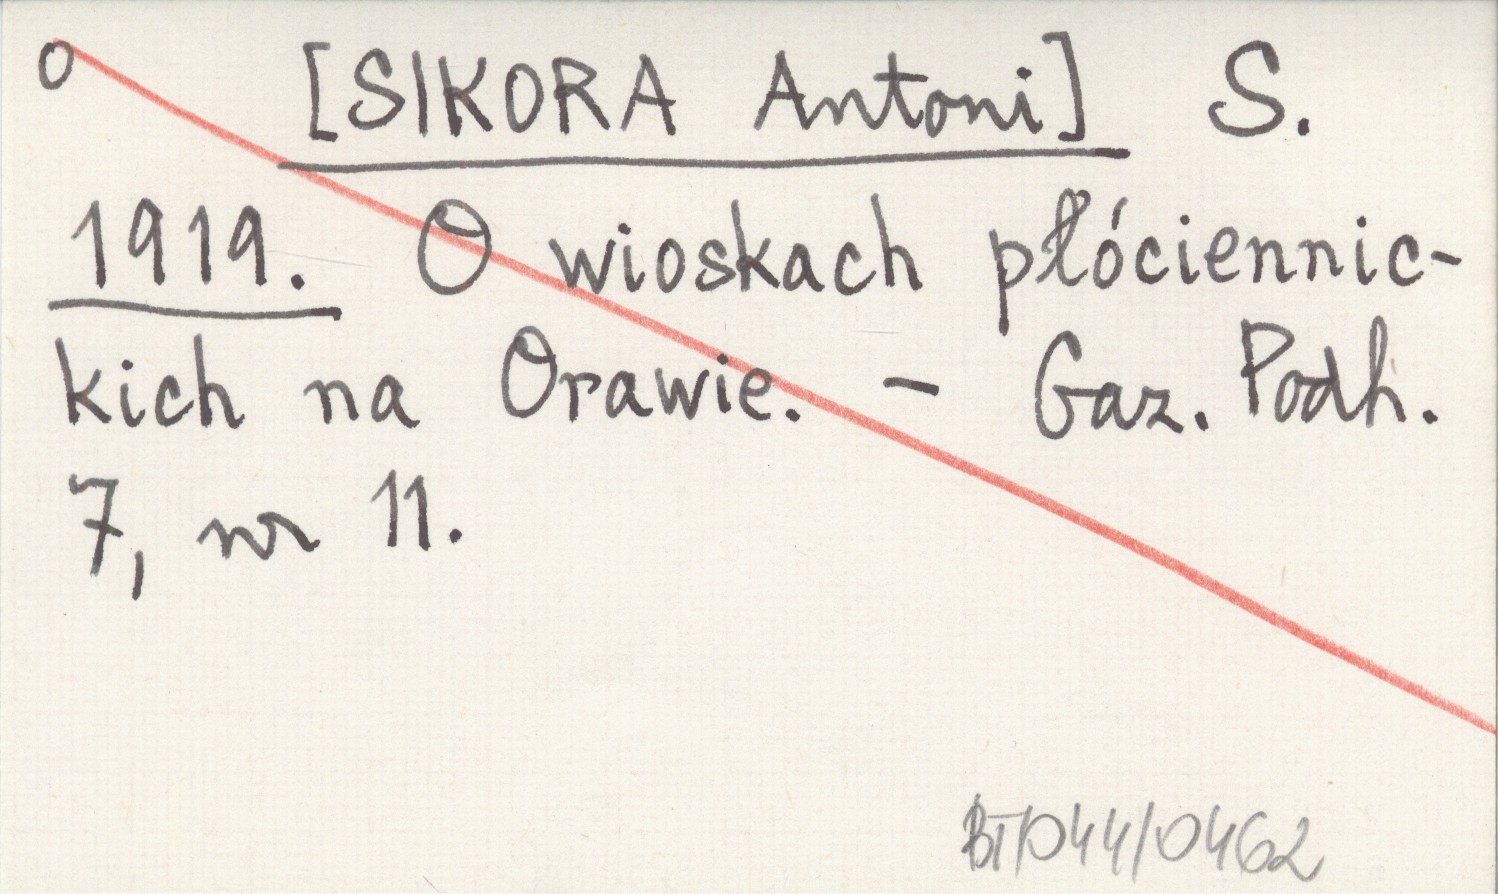 o [SIKORA Antoni] S.
1919. O wioskach płóciennic-
kich na Orawie. - Gaz. Podh.
7, nr 11.
BT/044/0462